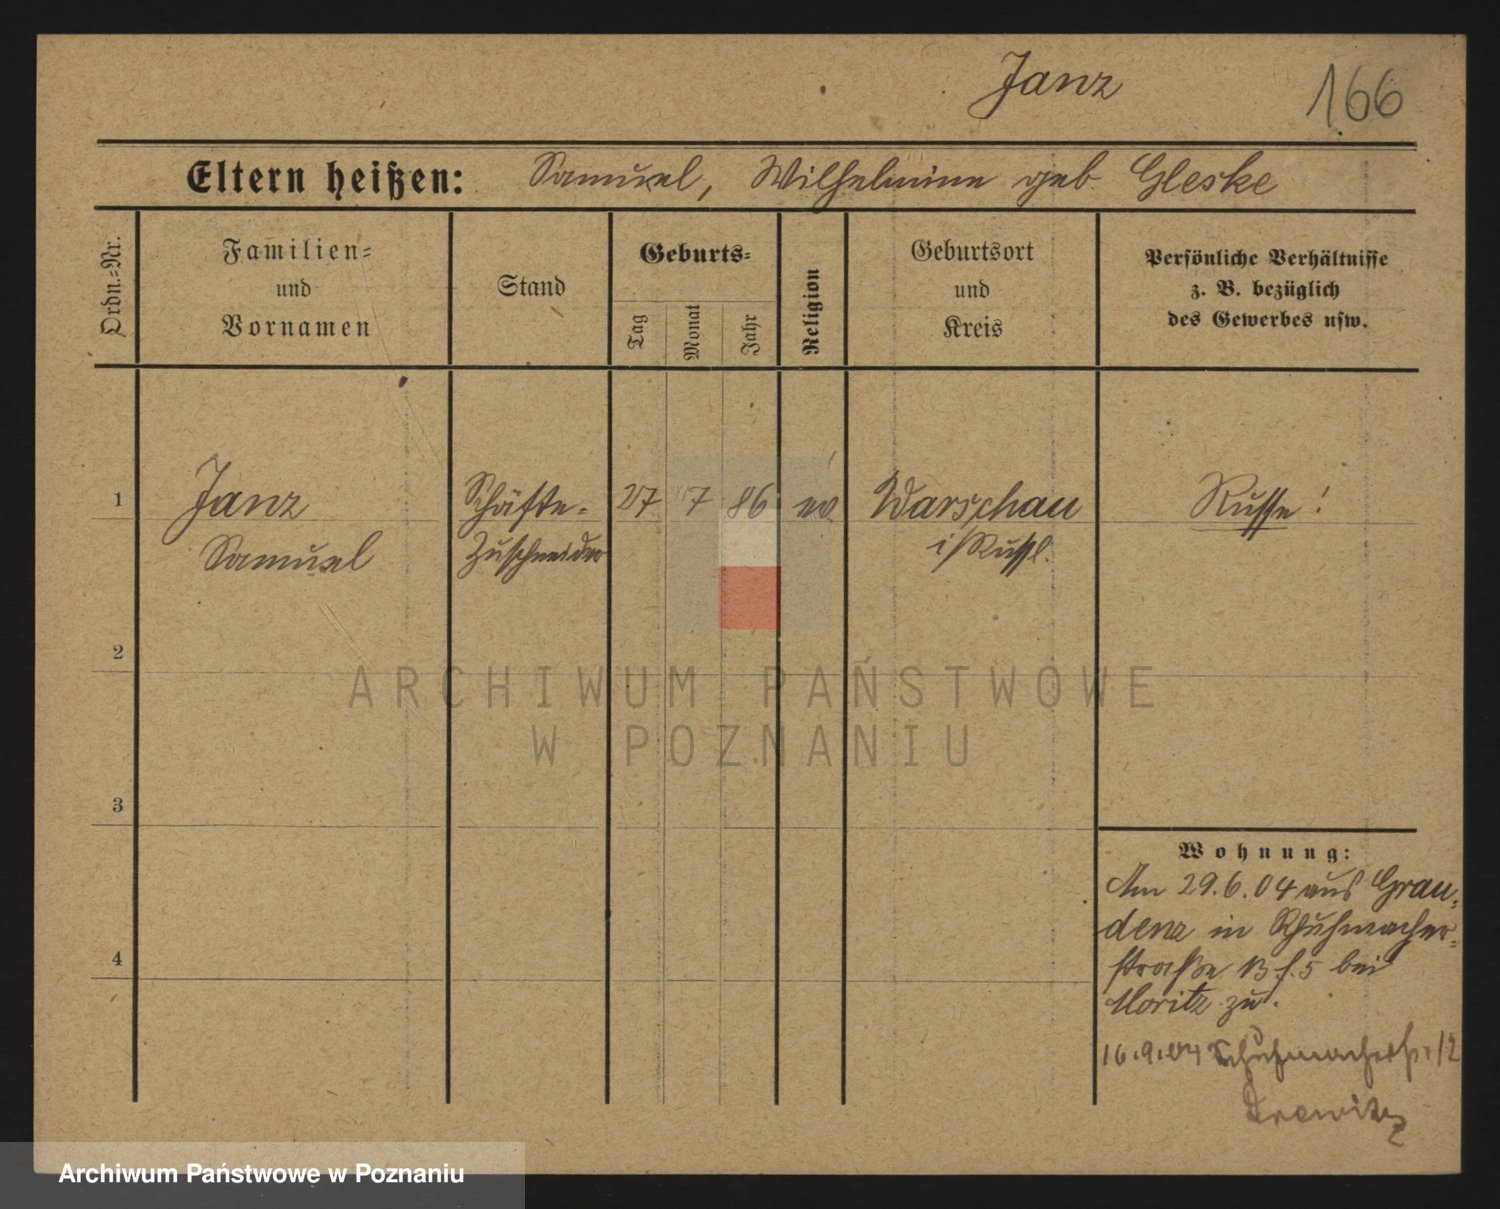 Janz
166
Eltern heißen: Samuel, Wilhelmine geb Gleske
Ordn.=Nr.
Familien=
und
Vornamen
Stand
Geburts=
Tag
Monat
Jahr
Religion
Geburtsort
und
Kreis
Persönliche Verhältnisse
z. B. bezüglich
des Gewerbes usw.
1 Janz Schäfte= 27 7 86 ev Warschau Russe!
Samuel Zuschneider i/Russl.
2
3
4
ARCHIWUM PAŃSTWOWE
W POZNANIU
Wohnung:
Am 29.6.04 aus Grau=
denz in Schuhmacher=
straße 13 f. 5 bei
Moritz zu.
16.9.04 Schuhmacherstr 12
Drewitz
Archiwum Państwowe w Poznaniu